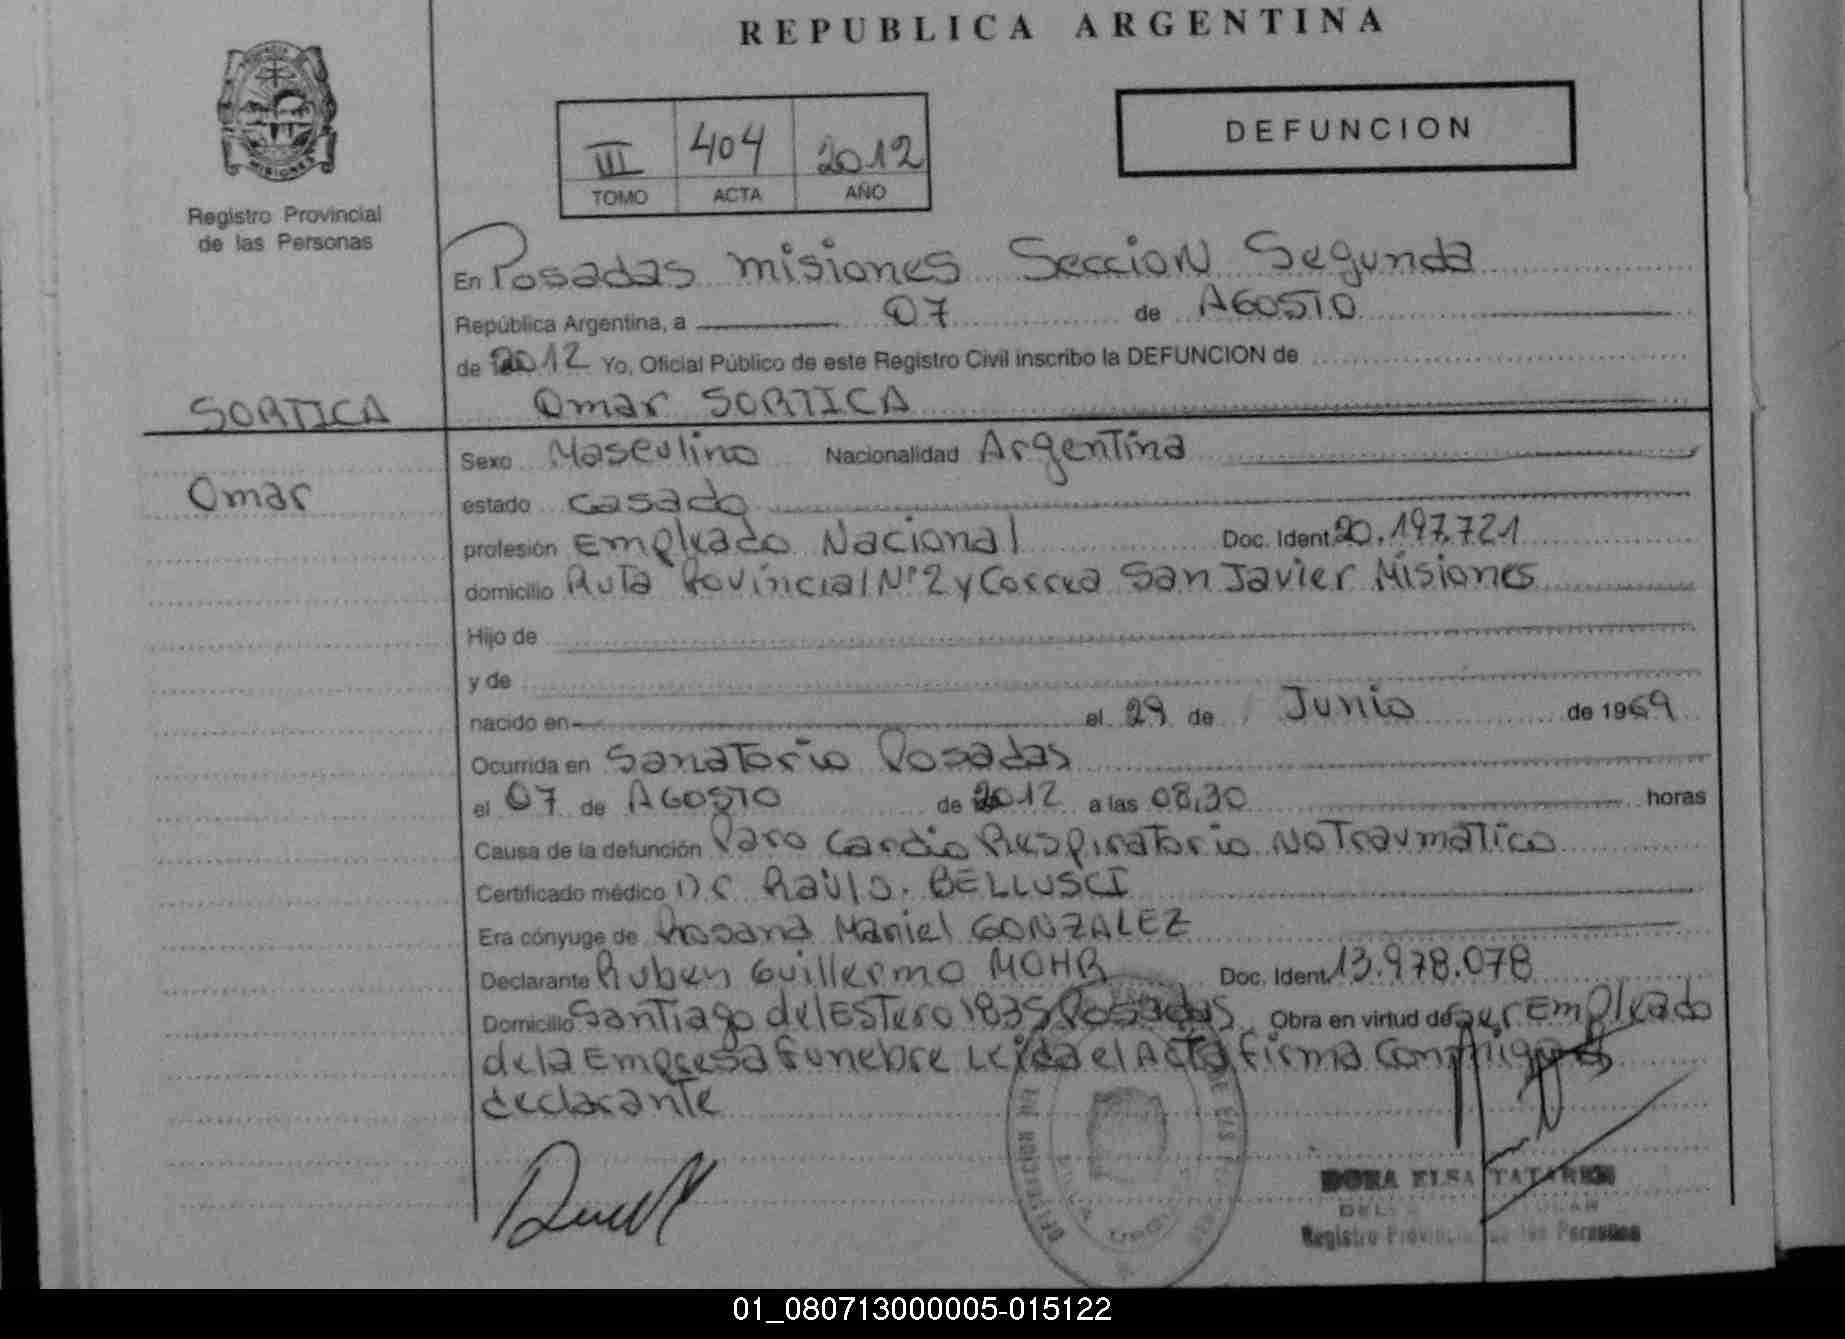 REPUBLICA ARGENTINA
MISIONES
Registro Provincial
de las Personas
III 404 2012
TOMO ACTA AÑO
DEFUNCION
En Posadas misiones Seccion Segunda
República Argentina, a 07 de AGOSTO
de 2012 Yo, Oficial Público de este Registro Civil inscribo la DEFUNCION de
SORTICA
Omar SORTICA
Omar
Sexo Masculino Nacionalidad Argentina
estado Casado
profesión Empleado Nacional Doc. Ident. 20.197.721
domicilio Ruta Provincial Nº 2 y Correa San Javier Misiones
Hijo de
y de
nacido en el 29 de Junio de 1969
Ocurrida en Sanatorio Posadas
el 07 de AGOSTO de 2012 a las 08,30 horas
Causa de la defunción Paro Cardio Respiratorio No Traumatico
Certificado médico Dr Raúl O. BELLUSCI
Era cónyuge de Rosana Mariel GONZALEZ
Declarante Ruben Guillermo MOHR Doc. Ident. 13.978.078
Domicilio Santiago del Estero 1835 Posadas Obra en virtud de ser Empleado
de la Empresa funebre Leida el Acta firma Conmigo el
declarante
DORA ELSA TATAREN
Registro Provincial de las Personas
01_080713000005-015122